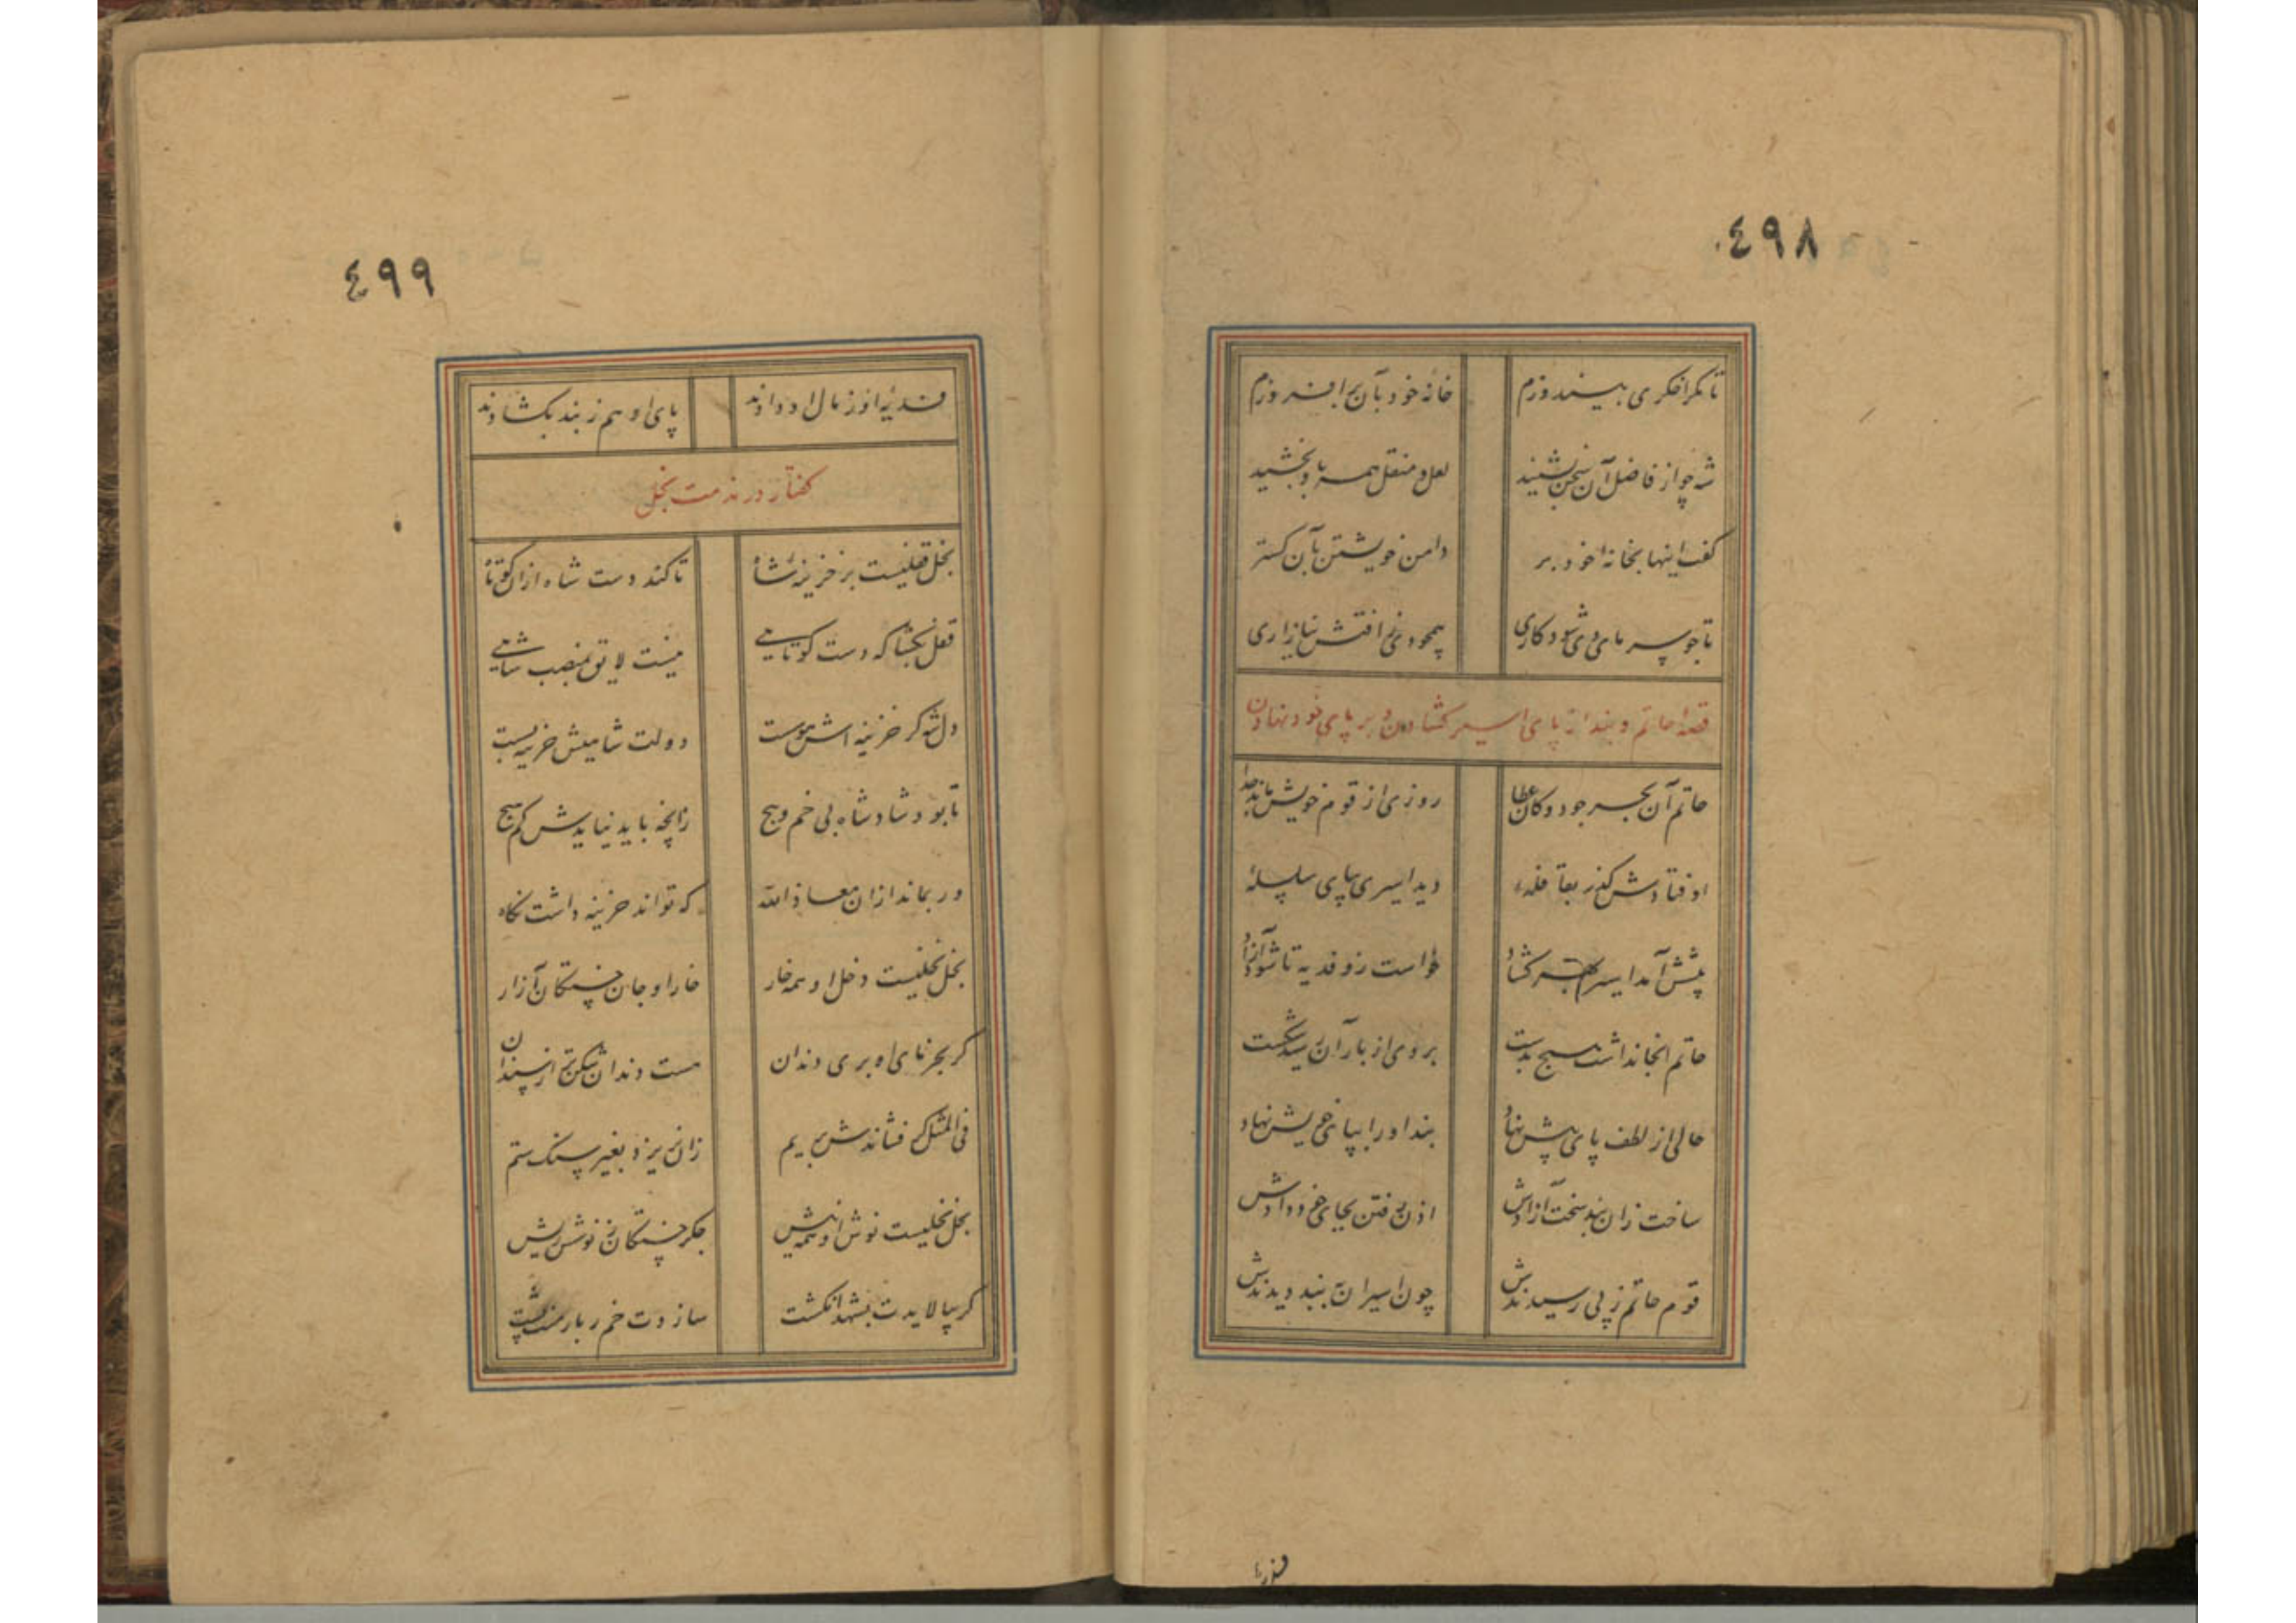 ٤٩٨
تا مگر اخگری بیندوزم خانه خود بآن برافروزم
شه چو از فاضل آن سخن بشنید لعل و منقل همه باو بخشید
گفت اینها بخانه خود بر دامن خویشتن بآن گستر
تا چو پیرمای دی شود کاری همچو دی افتش نیازاری
قصه حاتم و بند از پای اسیر گشادن و بر پای خود نهادن
حاتم آن بحر جود و کان عطا روزی از قوم خویش ماند جدا
اوفتادش گذر بقافله دید اسیری بپای سلسله
پیشش آمد اسیر بهر گشاد خواست زو فدیه تا شود آزاد
حاتم آنجا نداشت هیچ بدست بر وی از بار آن رسید شکست
حالی از لطف پای پیش نهاد بند او را بپای خویش نهاد
ساخت زان بند سخت آزادش اذن رفتن بجای خود دادش
قوم حاتم ز پی رسیدندش چون اسیران ببند دیدندش
فدیه
٤٩٩
فدیه او ز مال او دادند پای او هم ز بند بگشادند
گفتار در مذمت بخل
بخل قفلیست بر خزینه شاه تا کند دست شاه ازان کوتاه
قفل بگشا که دست کوتاهی نیست لایق بمنصب شاهی
دل شه گر خزینه اش هوست دولت شاهیش خزینه بست
تا بود شاد شاه بی خم و پیچ زانچه باید نیایدش کم هیچ
ور بماند ازان معاذ الله که تواند خزینه داشت نگاه
بخل نخلیست دخل او همه خار خار او جان خستگان آزار
گر بخرمای او بری دندان هست دندان شکن تر از سندان
فی المثل گر فشاندش بریم زان نریزد بغیر سنگ ستم
بخل نخلیست نوش او همه نیش جگر خستگان ز نوشش ریش
گر بیالایدت بشهد انگشت سازدت خم ز بار منت پشت